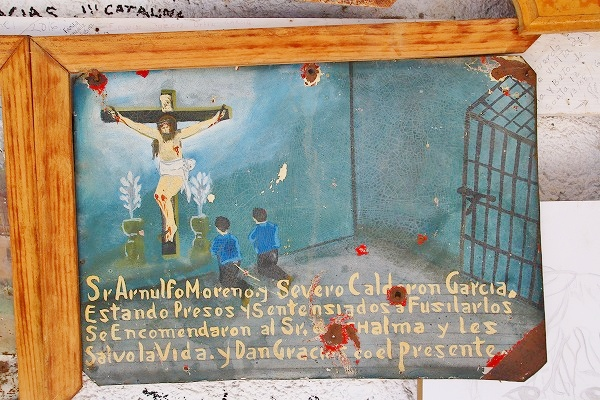 GRACIAS !!! CATALINA
Sr Arnulfo Moreno y Severo Calderon Garcia.
Estando Presos y Sentensiados a Fusilarlos
Se Encomendaron al Sr. Halma y les
Salvo la Vida. y Dan Gracias co el presente